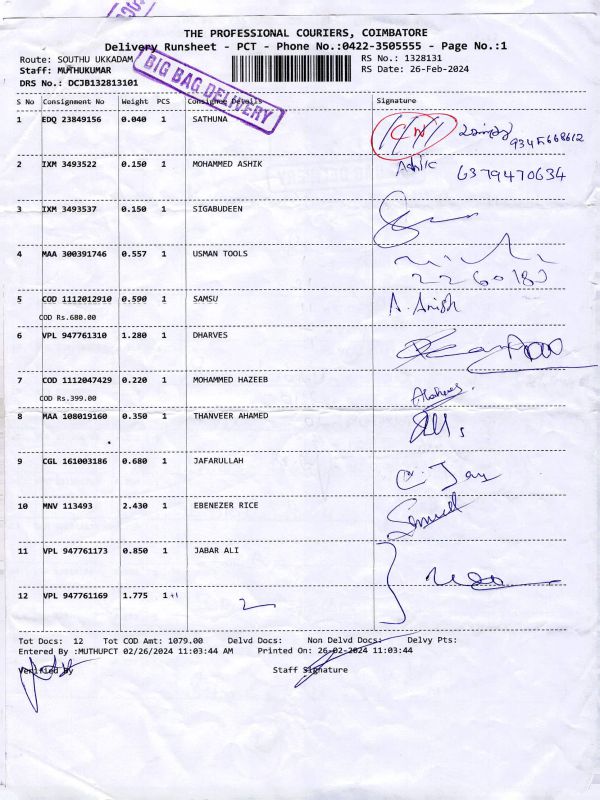 THE PROFESSIONAL COURIERS, COIMBATORE
Delivery Runsheet - PCT - Phone No.:0422-3505555 - Page No.:1
Route: SOUTHU UKKADAM RS No.: 1328131
Staff: MUTHUKUMAR RS Date: 26-Feb-2024
DRS No.: DCJB132813101
BIG BAG DELIVERY
S No Consignment No Weight PCS Consignee Details Signature
1 EDQ 23849156 0.040 1 SATHUNA
2 IXM 3493522 0.150 1 MOHAMMED ASHIK Ashik 6379470634
3 IXM 3493537 0.150 1 SIGABUDEEN
4 MAA 300391746 0.557 1 USMAN TOOLS
5 COD 1112012910 0.590 1 SAMSU A. Anish
COD Rs.680.00
6 VPL 947761310 1.280 1 DHARVES
7 COD 1112047429 0.220 1 MOHAMMED HAZEEB
COD Rs.399.00
8 MAA 108019160 0.350 1 THANVEER AHAMED
9 CGL 161003186 0.680 1 JAFARULLAH
10 MNV 113493 2.430 1 EBENEZER RICE Samuel
11 VPL 947761173 0.850 1 JABAR ALI
12 VPL 947761169 1.775 1 +1
Tot Docs: 12 Tot COD Amt: 1079.00 Delvd Docs: Non Delvd Docs: Delvy Pts:
Entered By :MUTHUPCT 02/26/2024 11:03:44 AM Printed On: 26-02-2024 11:03:44
Verified By Staff Signature